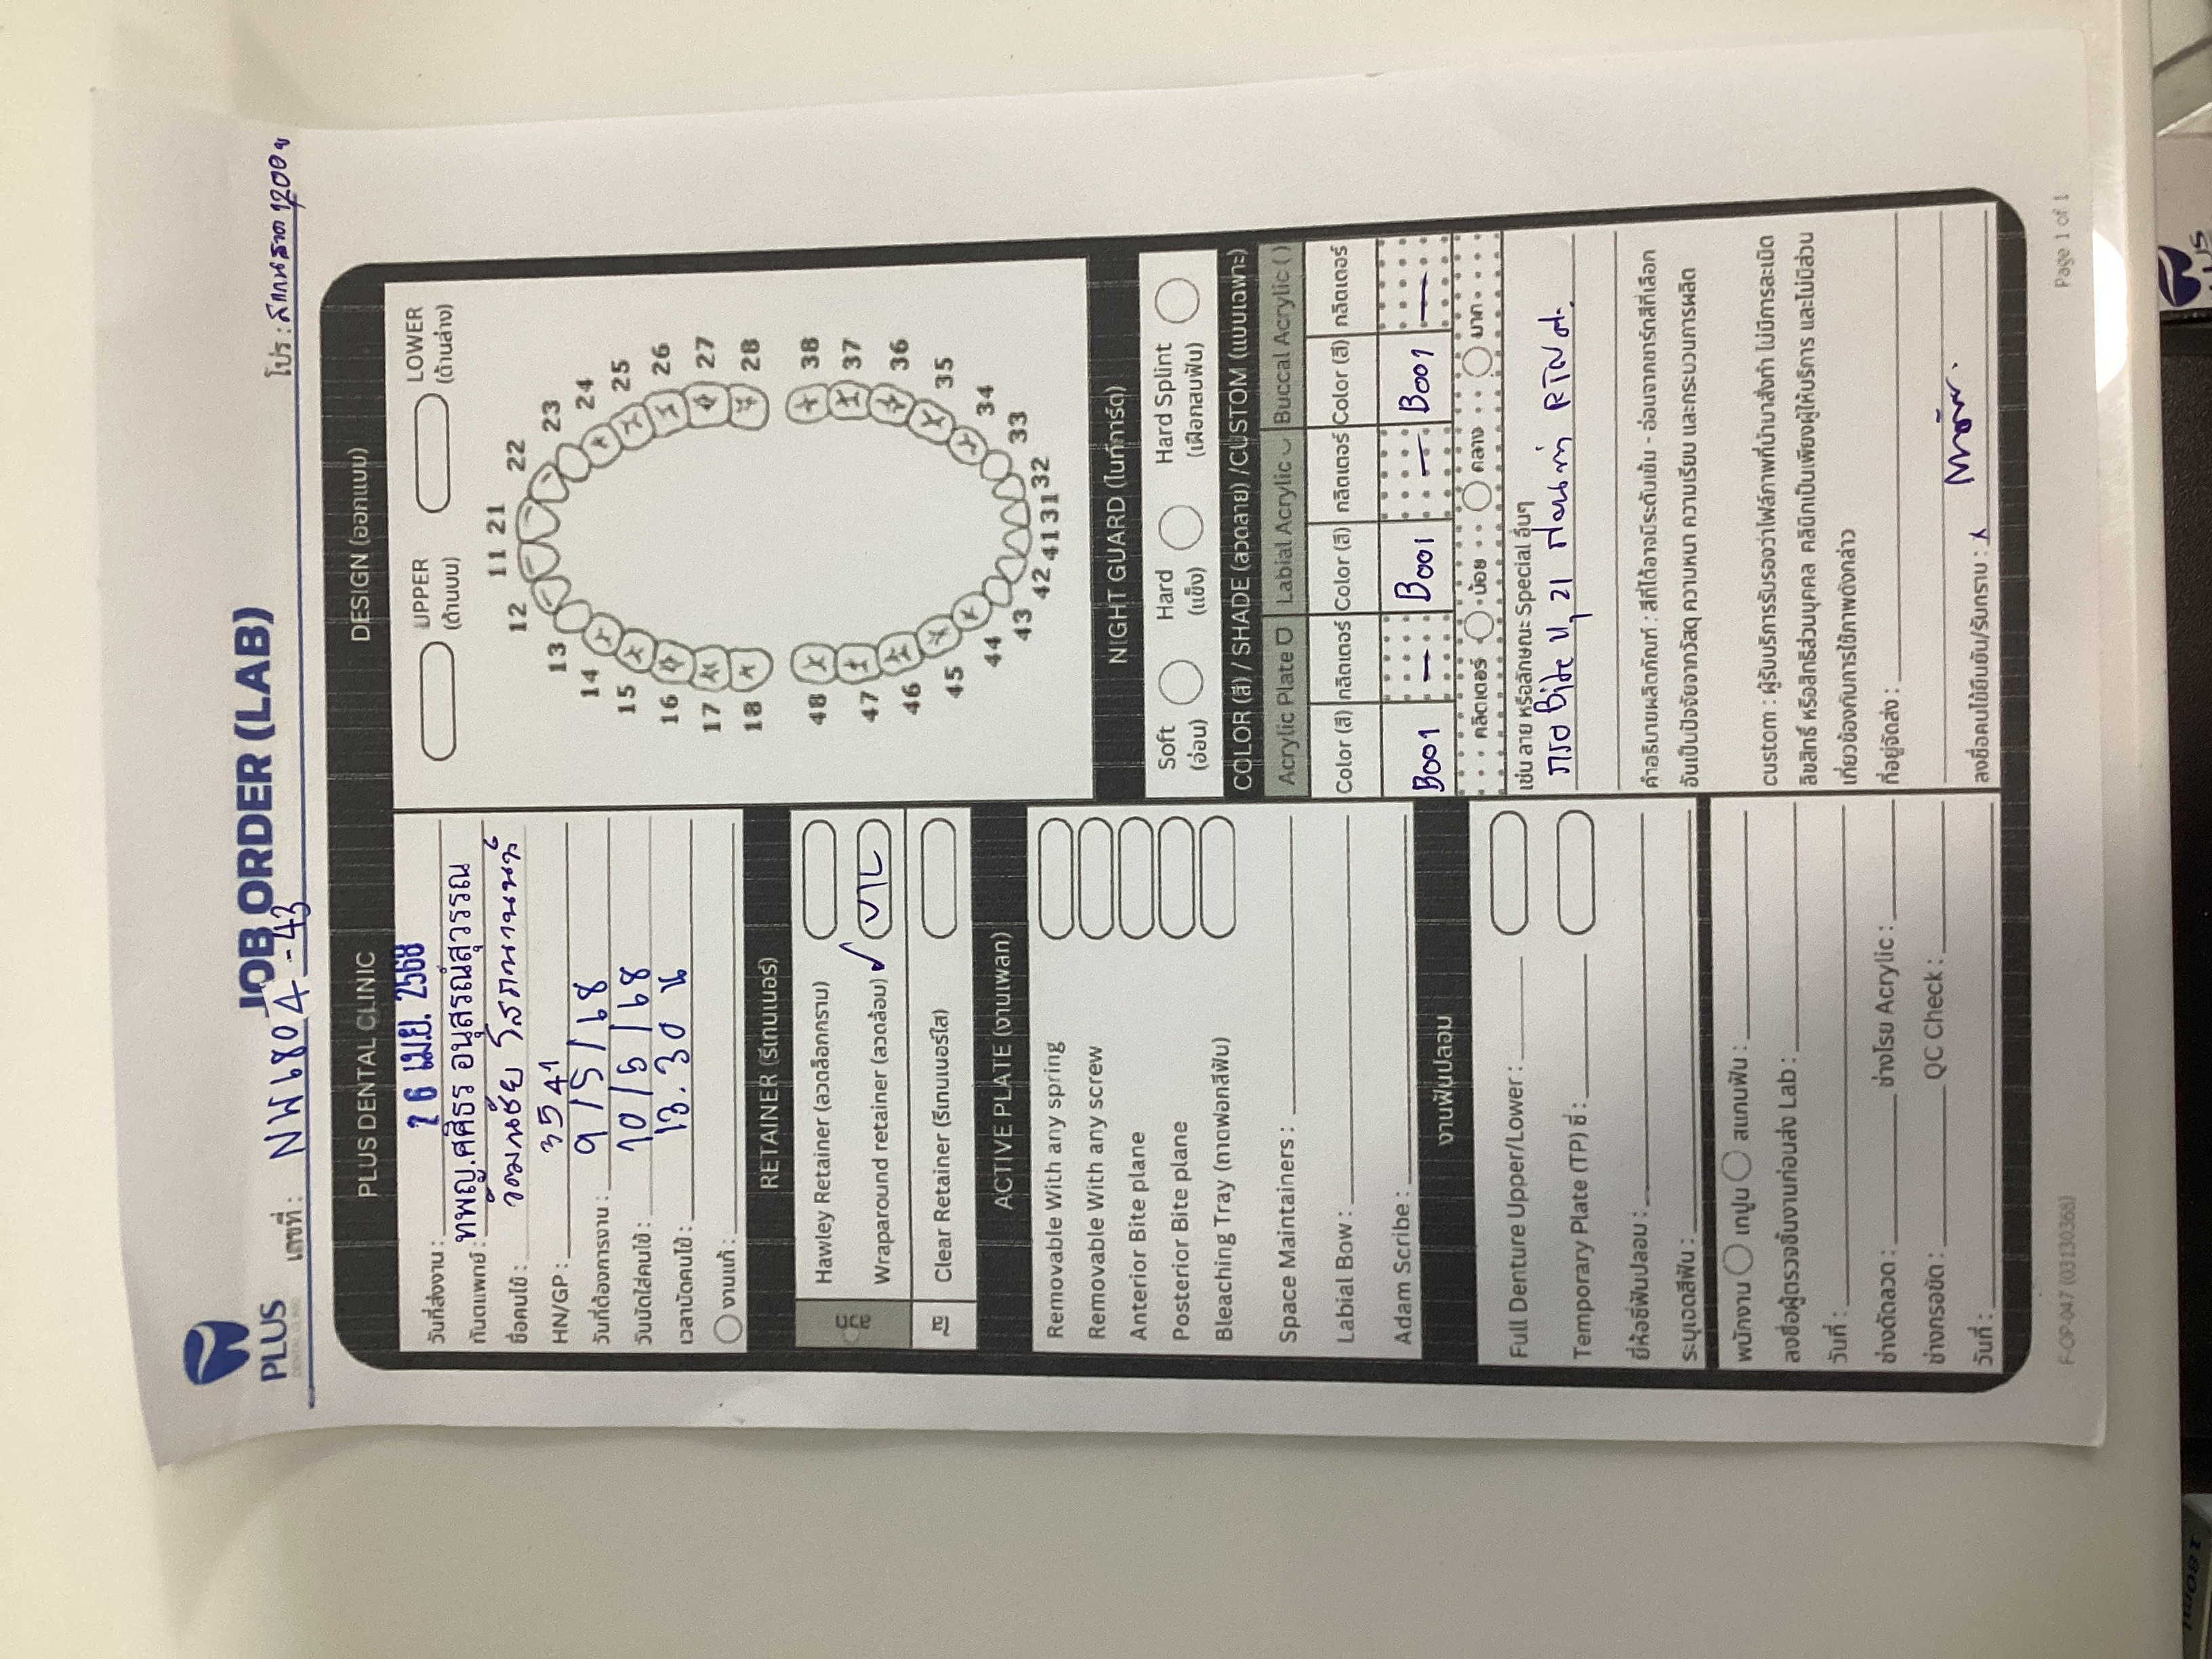 PLUS
DENTAL CLINIC
JOB ORDER (LAB)
เลขที่ : NW6804-43
โปร : สแกนลวด 1200 บ
PLUS DENTAL CLINIC
วันที่ส่งงาน : 26 เม.ย. 2568
ทันตแพทย์ : ทพญ.ศศิธร อนุสรณ์สุวรรณ
ชื่อคนไข้ : วัฒนชัย โสภณานนท์
HN/GP : 3541
วันที่ต้องการงาน : 9/5/68
วันนัดใส่คนไข้ : 10/5/68
เวลานัดคนไข้ : 13.30 น
งานแก้ :
RETAINER (รีเทนเนอร์)
ลวด
Hawley Retainer (ลวดล็อกกราม)
Wraparound retainer (ลวดล้อม) ✓ U/L
ใส
Clear Retainer (รีเทนเนอร์ใส)
ACTIVE PLATE (งานเพลท)
Removable With any spring
Removable With any screw
Anterior Bite plane
Posterior Bite plane
Bleaching Tray (ถาดฟอกสีฟัน)
Space Maintainers :
Labial Bow :
Adam Scribe :
งานฟันปลอม
Full Denture Upper/Lower :
Temporary Plate (TP) ซี่ :
ยี่ห้อซี่ฟันปลอม :
ระบุเฉดสีฟัน :
พนักงาน เทปูน สแกนฟัน :
ลงชื่อผู้ตรวจชิ้นงานก่อนส่ง Lab :
วันที่ :
ช่างดัดลวด : ช่างโรย Acrylic :
ช่างกรอขัด : QC Check :
วันที่ :
DESIGN (ออกแบบ)
UPPER
(ด้านบน)
LOWER
(ด้านล่าง)
11 21
12 22
13 23
14 24
15 25
16 26
17 27
18 28
48 38
47 37
46 36
45 35
44 34
43 33
42 41 31 32
NIGHT GUARD (ไนท์การ์ด)
Soft
(อ่อน)
Hard
(แข็ง)
Hard Splint
(เฝือกสบฟัน)
COLOR (สี) / SHADE (ลวดลาย) /CUSTOM (แบบเฉพาะ)
Acrylic Plate Labial Acrylic Buccal Acrylic ( )
Color (สี) กลิตเตอร์ Color (สี) กลิตเตอร์ Color (สี) กลิตเตอร์
B001 — B001 — B001 —
กลิตเตอร์ น้อย กลาง มาก
เช่น ลาย หรือลักษณะ Special อื่นๆ
กรอ Bite 11, 21 ก่อนทำ RTN
คำอธิบายผลิตภัณฑ์ : สีที่ได้อาจมีระดับเข้ม - อ่อนจากชาร์ทสีที่เลือก
อันเป็นปัจจัยจากวัสดุ ความหนา ความเรียบ และกระบวนการผลิต
custom : ผู้รับบริการรับรองว่าไฟล์ภาพที่นำมาสั่งทำ ไม่มีการละเมิด
ลิขสิทธิ์ หรือสิทธิส่วนบุคคล คลินิกเป็นเพียงผู้ให้บริการ และไม่มีส่วน
เกี่ยวข้องกับการใช้ภาพดังกล่าว
ที่อยู่จัดส่ง :
ลงชื่อคนไข้ยืนยัน/รับทราบ : x
F-OP-047 (03130368)
Page 1 of 1
180ml